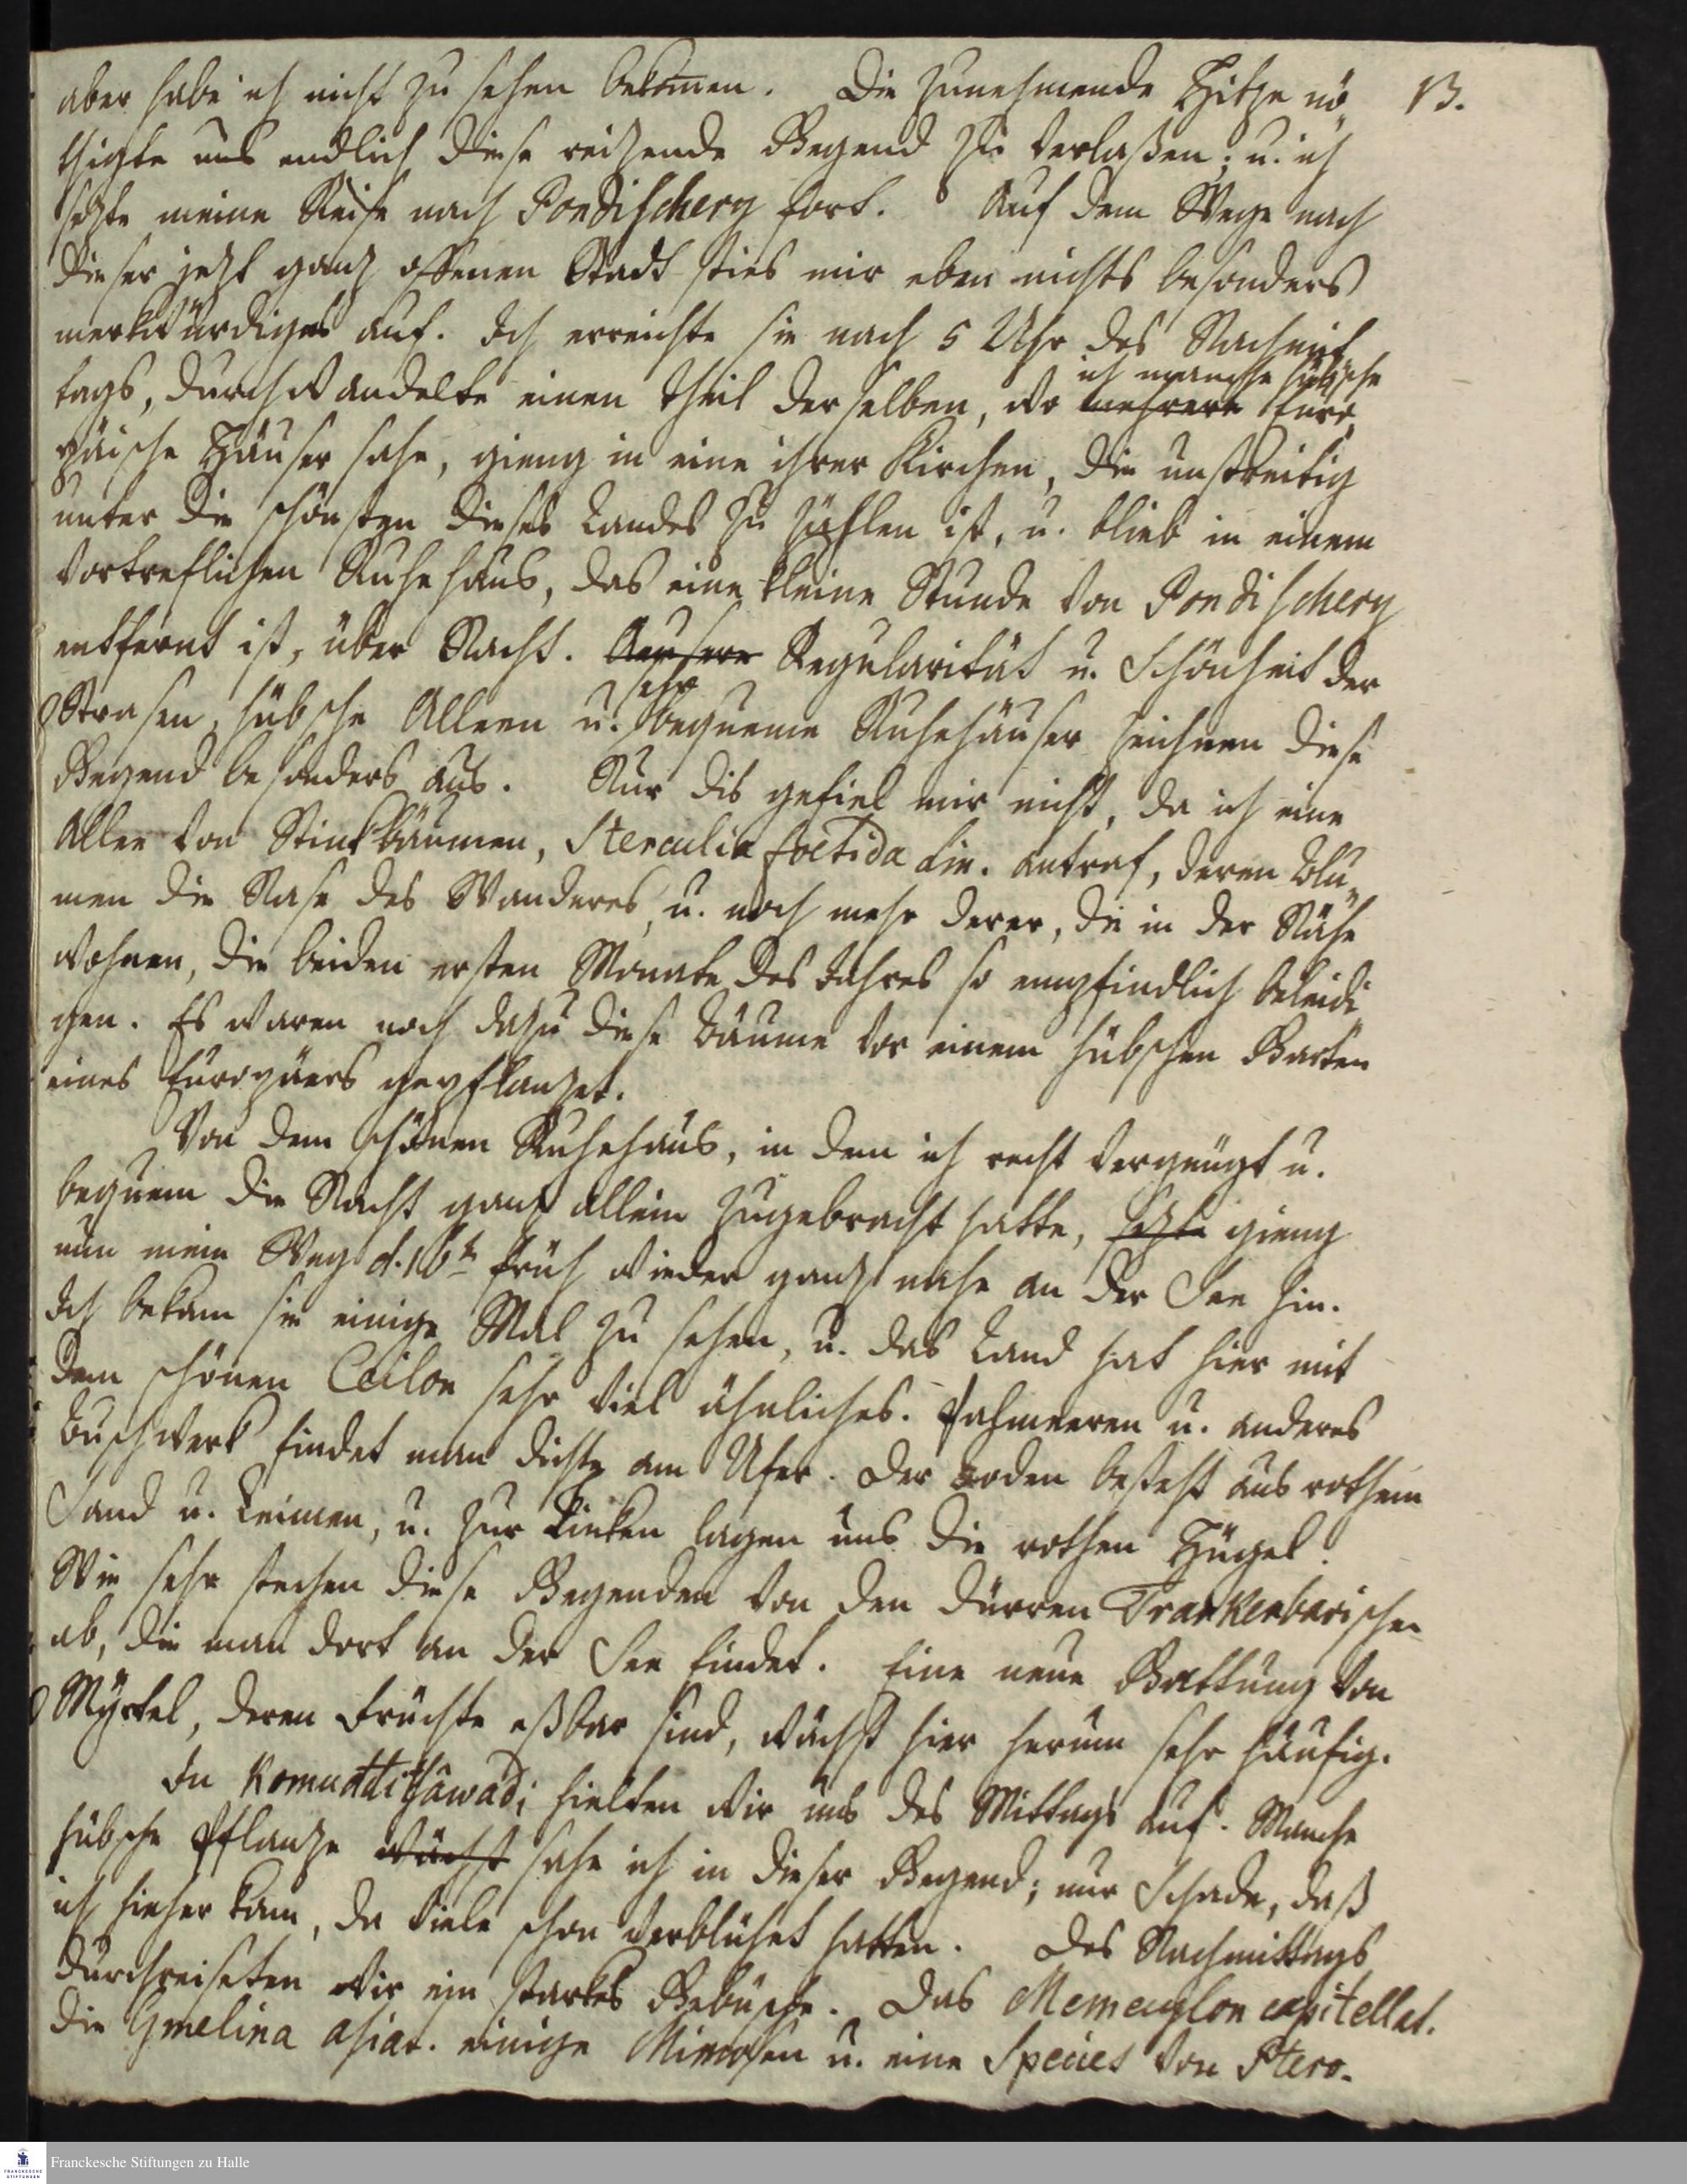 aber habe ich nicht zu sehen bekom̄en. Die zunehmende Hitze nö„ 13.
thigte uns endlich diese reitzende Gegend zu verlaßen; u. ich
sezte meine Reise nach Pondischery fort. Auf dem Wege nach
dieser jezt ganz offenen Stadt sties mir eben nichts besonders
merkwürdiges auf. Ich erreichte sie nach 5 Uhr des Nachmit„
tags, durchwandelte einen Theil derselben, wo mehrere ich manche hübsche Euro„
päische Häuser sahe, gieng in eine ihrer Kirchen, die unstreitig
unter die schönsten dieses Landes zu zählen ist, u. blieb in einem
vortreflichen Ruhehaus, das eine kleine Stunde von Pondischery
entfernt ist, über Nacht. Regularität u. Schönheit der
Strasen, hübsche Alleen u. sehr bequeme Ruhehäuser zeichnen diese
Gegend besonders aus. Nur dis gefiel mir nicht, da ich eine
Allee von Stinkbäumen, Sterculia foetida Lin. antraf, deren Blu„
men die Nase des Wanderes, u. noch mehr derer, die in der Nähe
wohnen, die beiden ersten Monate des Jahres so empfindlich beleidi„
gen. Es waren noch dazu diese Bäume vor einem hübschen Garten
eines Europäers gepflanzet.
Von dem schönen Ruhehaus, in dem ich recht vergnügt u.
bequem die Nacht ganz allein zugebracht hatte, sezte gieng
nun mein Weg d. 16ten früh wieder ganz nahe an der See hin.
Ich bekam sie einige Mal zu sehen, u. das Land hat hier mit
dem schönen Ceilon sehr viel ähnliches. Palmeeren u. anderes
Buschwerk findet man dichte am Ufer. Der Boden besteht aus rothem
Sand u. Leimen, u. zur Linken lagen uns die rothen Hügel.
Wie sehr stechen diese Gegenden von den dürren Trankenbarischen
ab, die man dort an der See findet. Eine neue Gattung von
Myrtel, deren Früchte eßbar sind, wächst hier herum sehr häufig.
In hielten wir uns des Mittags auf. Manche
hübsche Pflanze wächst sahe ich in dieser Gegend; nur Schade, daß
ich hieher kam, da viele schon verblühet hatten. Des Nachmittags
durchreiseten wir ein starkes Gebüsche. Das Memecylon capitellat.
die Gmelina asiat. einige Mimosen u. eine Species von Ptero-
Franckesche Stiftungen zu Halle
FRANCKESCHE
STIFTUNGEN